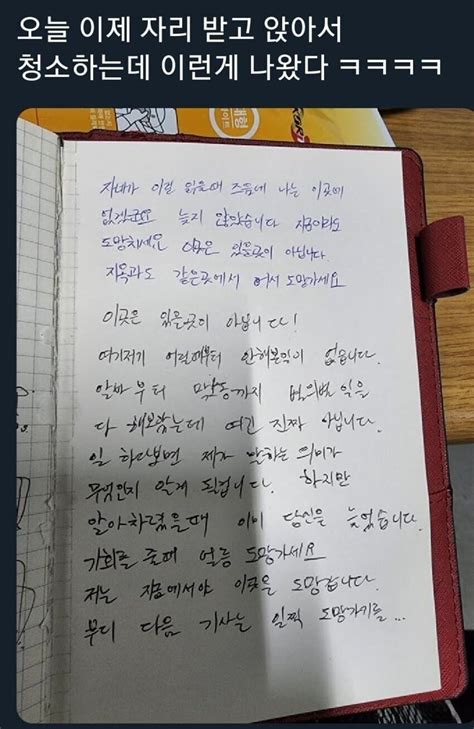 오늘 이제 자리 받고 앉아서
청소하는데 이런게 나왔다 ㅋㅋㅋㅋ
자네가 이걸 읽을때 즈음에 나는 이곳에
없겠군요 늦지 않았습니다 지금이라도
도망치세요 이곳은 있을곳이 아닙니다.
지옥과도 같은곳에서 어서 도망가세요
이곳은 있을곳이 아닙니다!
여기저기 어릴때부터 안해본일이 없습니다.
알바부터 막노동까지 별의별 일을
다 해보았는데 여긴 진짜 아닙니다.
일 하다보면 제가 말하는 의미가
무엇인지 알게 됩니다. 하지만
알아차렸을때 이미 당신은 늦었습니다.
기회를 줄때 얼릉 도망가세요
저는 지금에서야 이곳을 도망갑니다.
부디 다음 기사는 일찍 도망가기를...